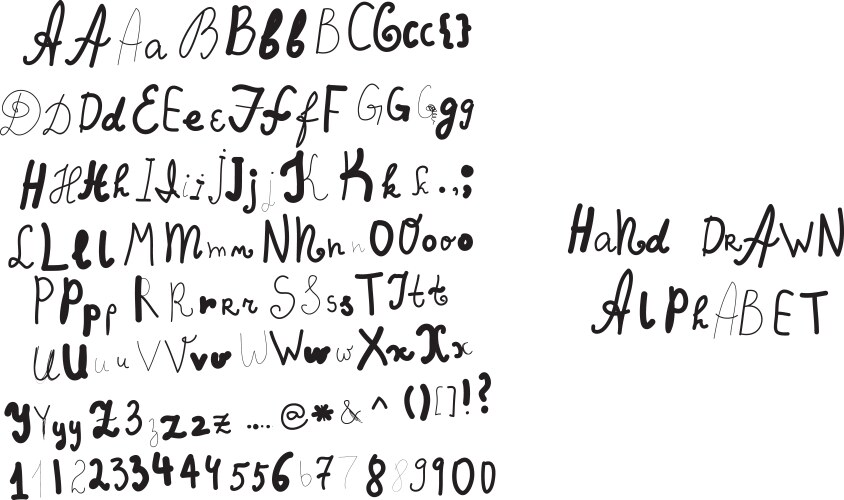 A A A a B B B b b B C C c c { }
D D D d E E e e F f f F G G G g g
H H H h I I i i J J j j J K K k k . . , ;
L L l l M M m m N N n n n O O o o o
P P p p R R r R r S S s s T T t t
u U u u V V v v W W w w X x X x
y Y y y Z 3 z z z z .... @ * & ^ ( ) [ ] ! ?
1 1 1 2 2 3 3 4 4 4 5 5 6 6 7 7 8 8 9 9 0 0
HaNd DRAWN
AlPhABET